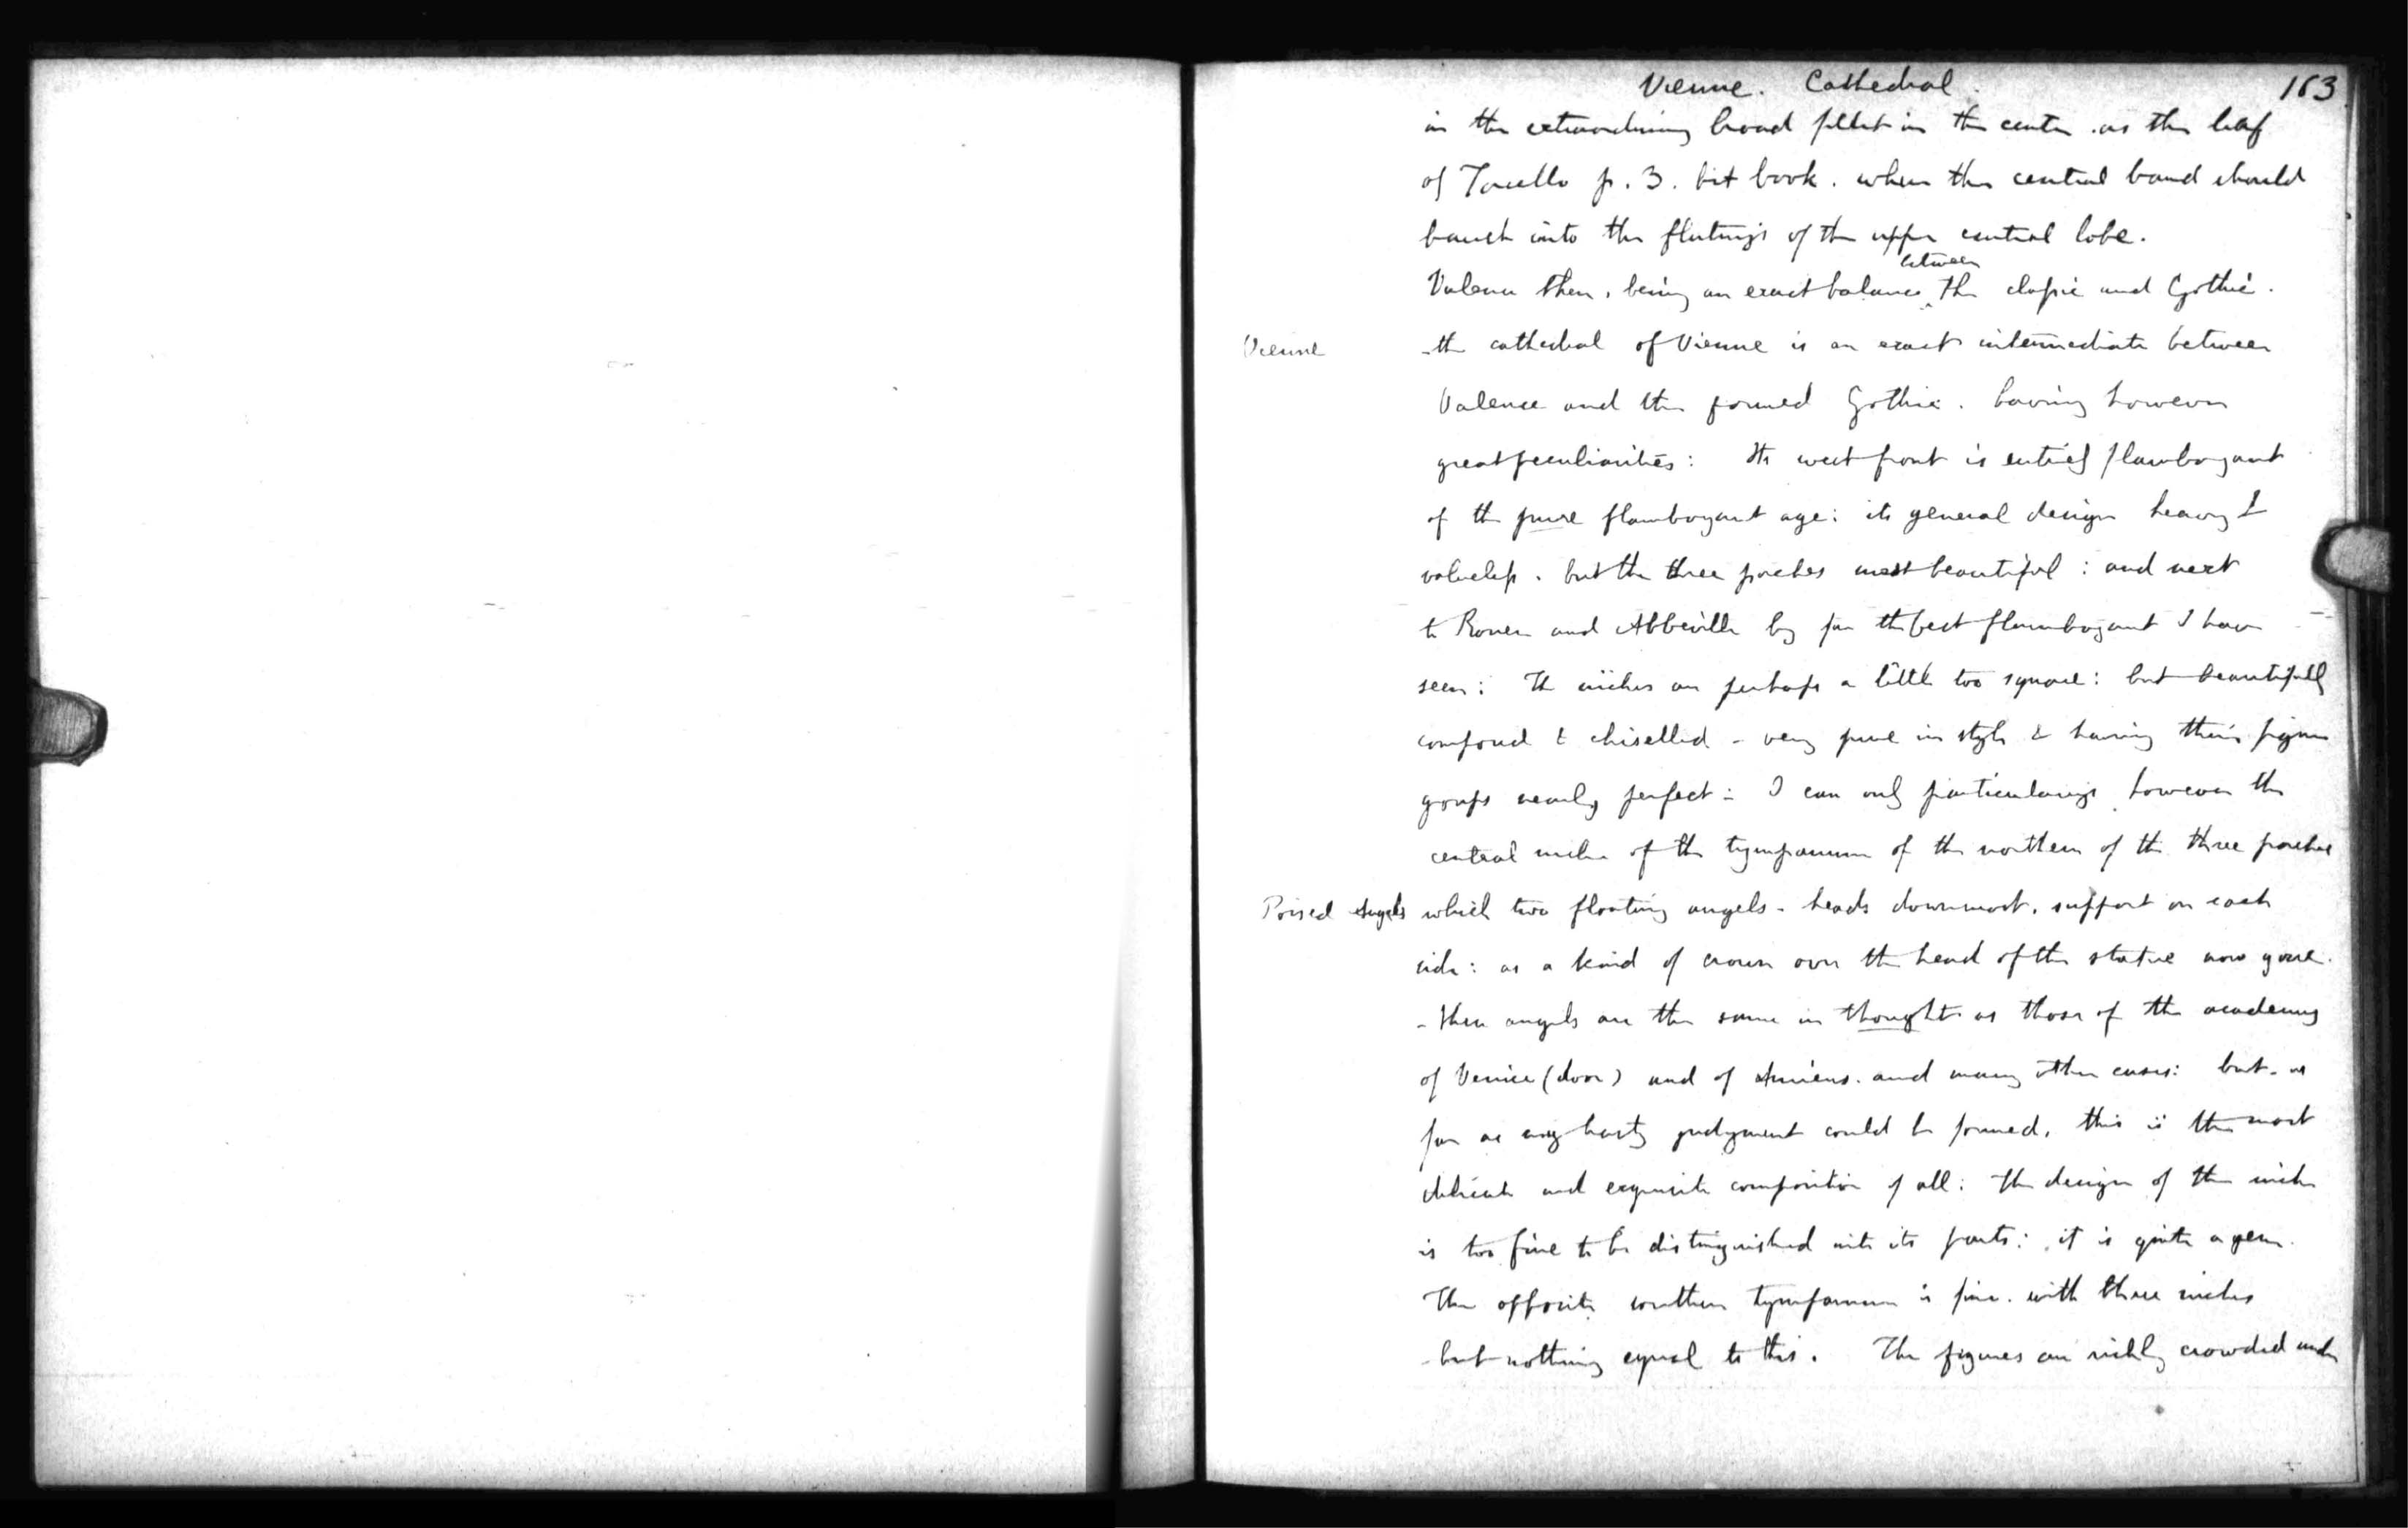 Vienne. Cathedral.
163
in the extraordinary broad fillet in the center. as the leaf
of Torcello p. 3. bit book. when the central band should
branch into the flutings of the upper central lobe.
between
Valence then, being an exact balance the classic and Gothic.
Vienne
the cathedral of Vienne is an exact intermediate between
Valence and the formed Gothic. having however
great peculiarities: Its west front is entirely flamboyant
of the pure flamboyant age: its general design heavy &
valueless. but the three porches most beautiful: and next
to Rouen and Abbeville by far the best flamboyant I have
seen: The niches are perhaps a little too square: but beautifully
composed & chiselled - very pure in style & having their figure
groups nearly perfect: I can only particularize however the
central niche of the tympanum of the northern of the three porches
Poised Angels
which two floating angels - heads downmost, support on each
side: as a kind of crown over the head of the statue now gone.
- these angels are the same in thought as those of the academy
of Venice (door) and of Amiens. and many other cases: but - as
far as any hasty judgment could be formed, this is the most
delicate and exquisite composition of all: the design of the niche
is too fine to be distinguished into its parts: it is quite a gem.
The opposite southern tympanum is fine. with three niches
but nothing equal to this. The figures are richly crowded under